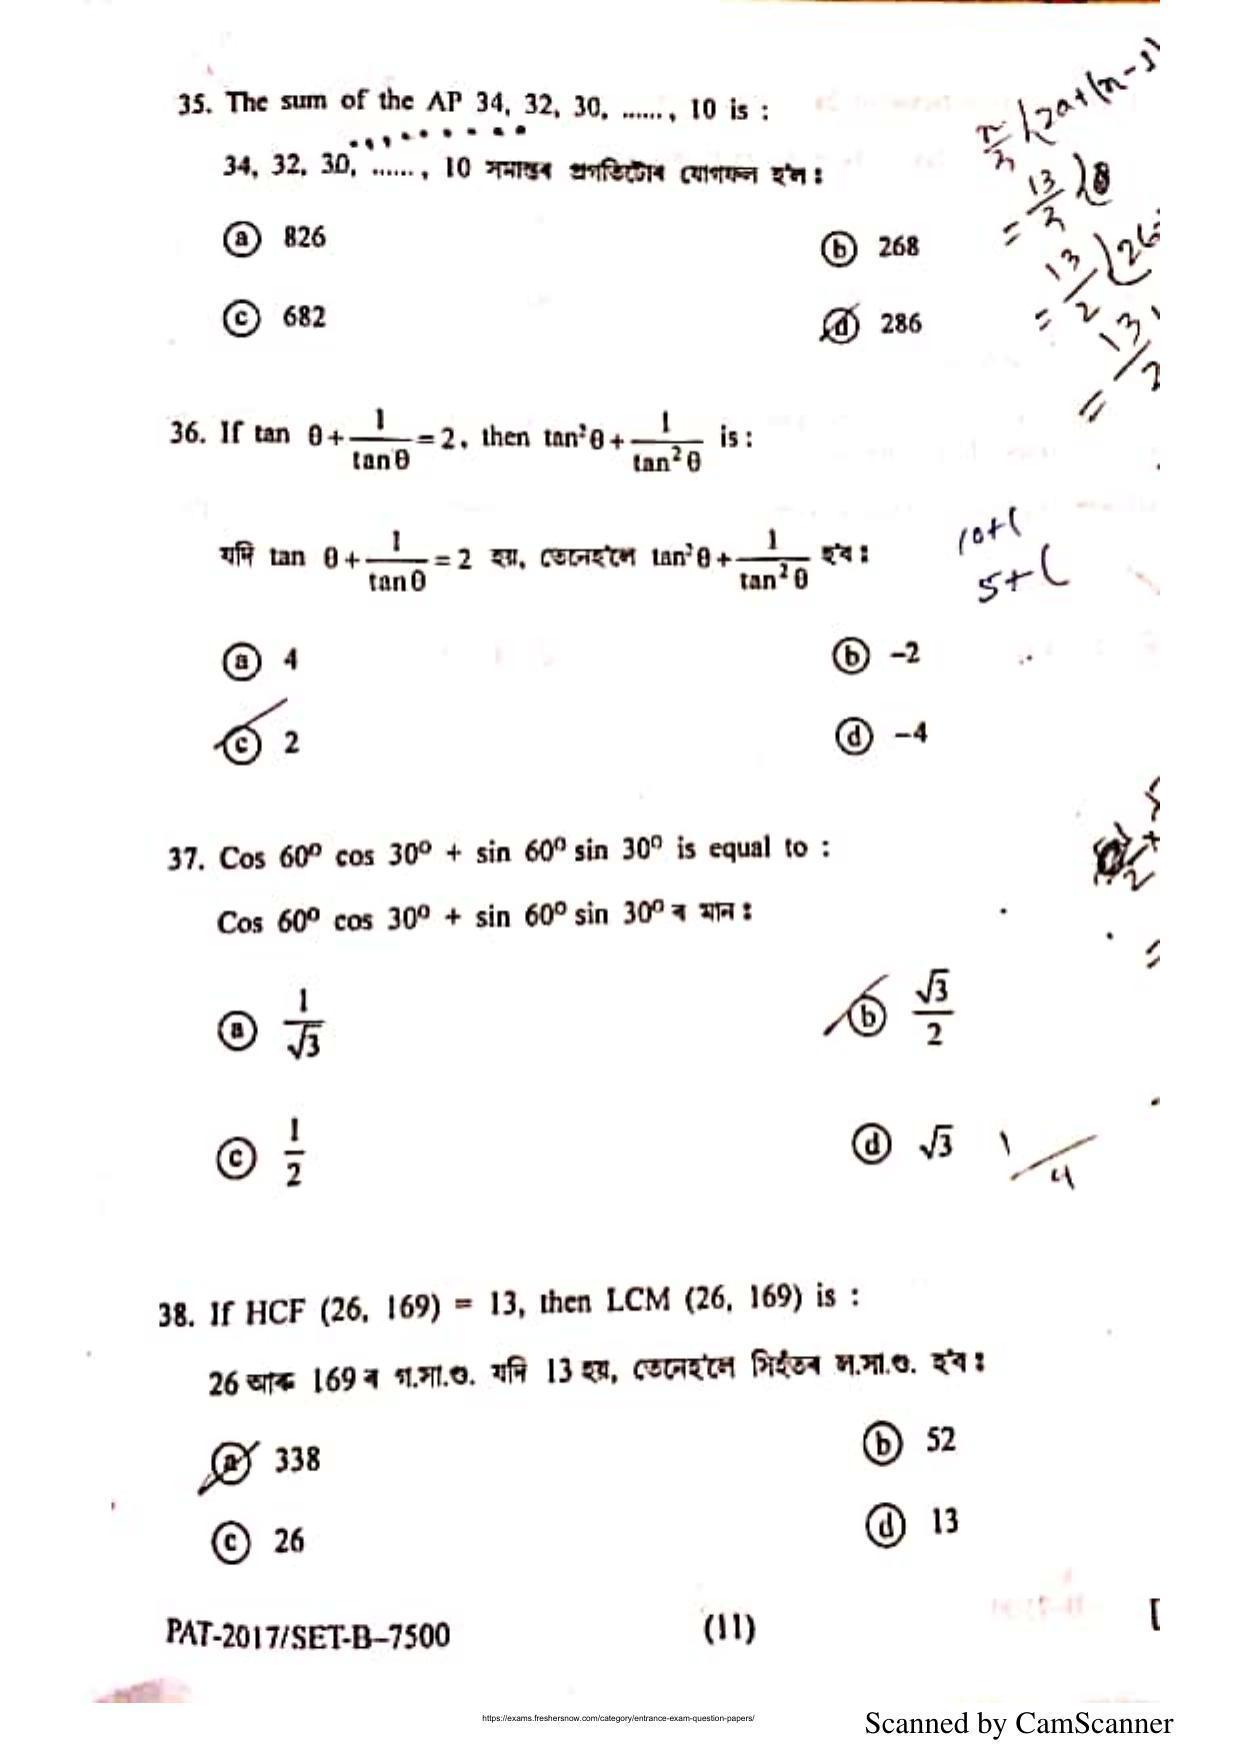 35. The sum of the AP 34, 32, 30, ......, 10 is :
34, 32, 30, ......, 10 সমান্তৰ প্ৰগতিটোৰ যোগফল হ'ল :
(a) 826
(b) 268
(c) 682
(d) 286
n/2 {2a+(n-1)
= 13/2 {
= 13/2 {26
= 13/2
36. If tan θ + 1/tan θ = 2, then tan²θ + 1/tan² θ is :
যদি tan θ + 1/tan θ = 2 হয়, তেনেহ'লে tan²θ + 1/tan² θ হ'ব :
10+(
5+(
(a) 4
(b) –2
(c) 2
(d) –4
37. Cos 60º cos 30º + sin 60º sin 30º is equal to :
Cos 60º cos 30º + sin 60º sin 30º ৰ মান :
(a) 1/√3
(b) √3/2
(c) 1/2
(d) √3
1/4
38. If HCF (26, 169) = 13, then LCM (26, 169) is :
26 আৰু 169 ৰ গ.সা.গু. যদি 13 হয়, তেনেহ'লে সিহঁতৰ ল.সা.গু. হ'ব :
(a) 338
(b) 52
(c) 26
(d) 13
PAT-2017/SET-B–7500
(11)
[
https://exams.freshersnow.com/category/entrance-exam-question-papers/
Scanned by CamScanner